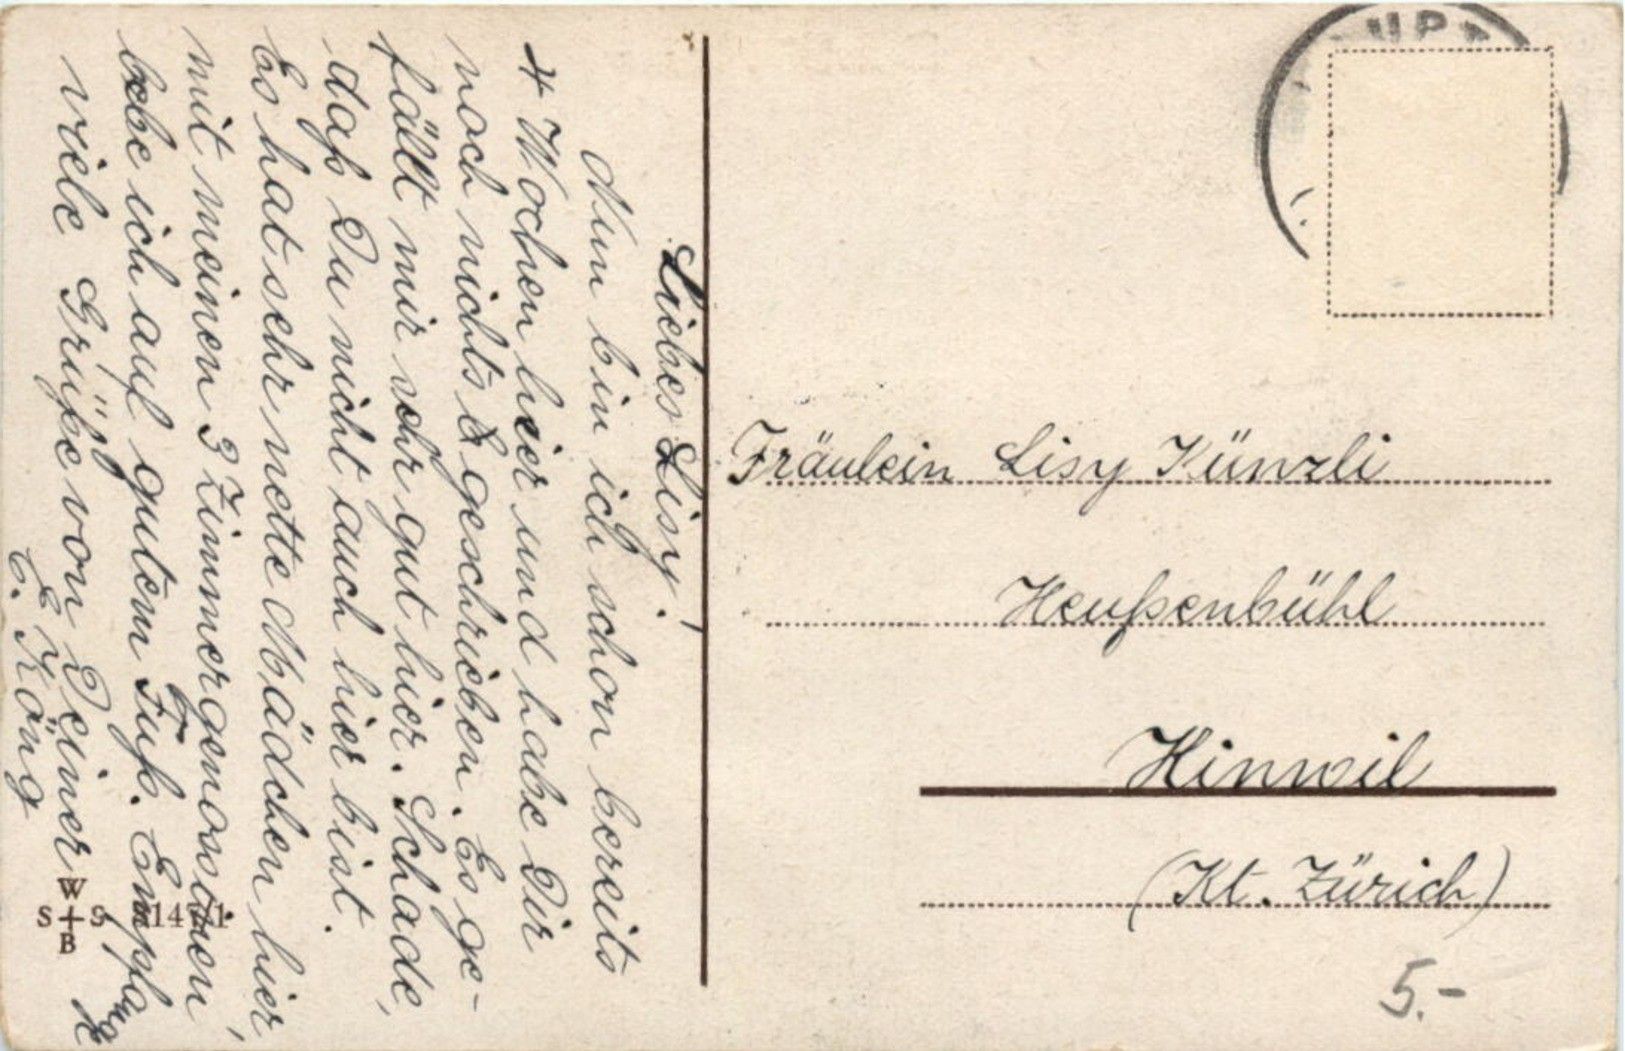 Liebes Lisy!
Nun bin ich schon bereits
4 Wochen hier und habe Dir
noch nichts geschrieben. Es ge-
fällt mir sehr gut hier. Schade,
daß Du nicht auch hier bist.
Es hat sehr nette Mädchen hier,
mit meinen 3 Zimmergenossinen
lebe ich auf gutem Fuß. Empfange
viele Grüße von Deiner
E. König
Fräulein Lisy Künzli
Heußenbühl
Hinwil
(Kt. Zürich)
5.-
W
S S
B